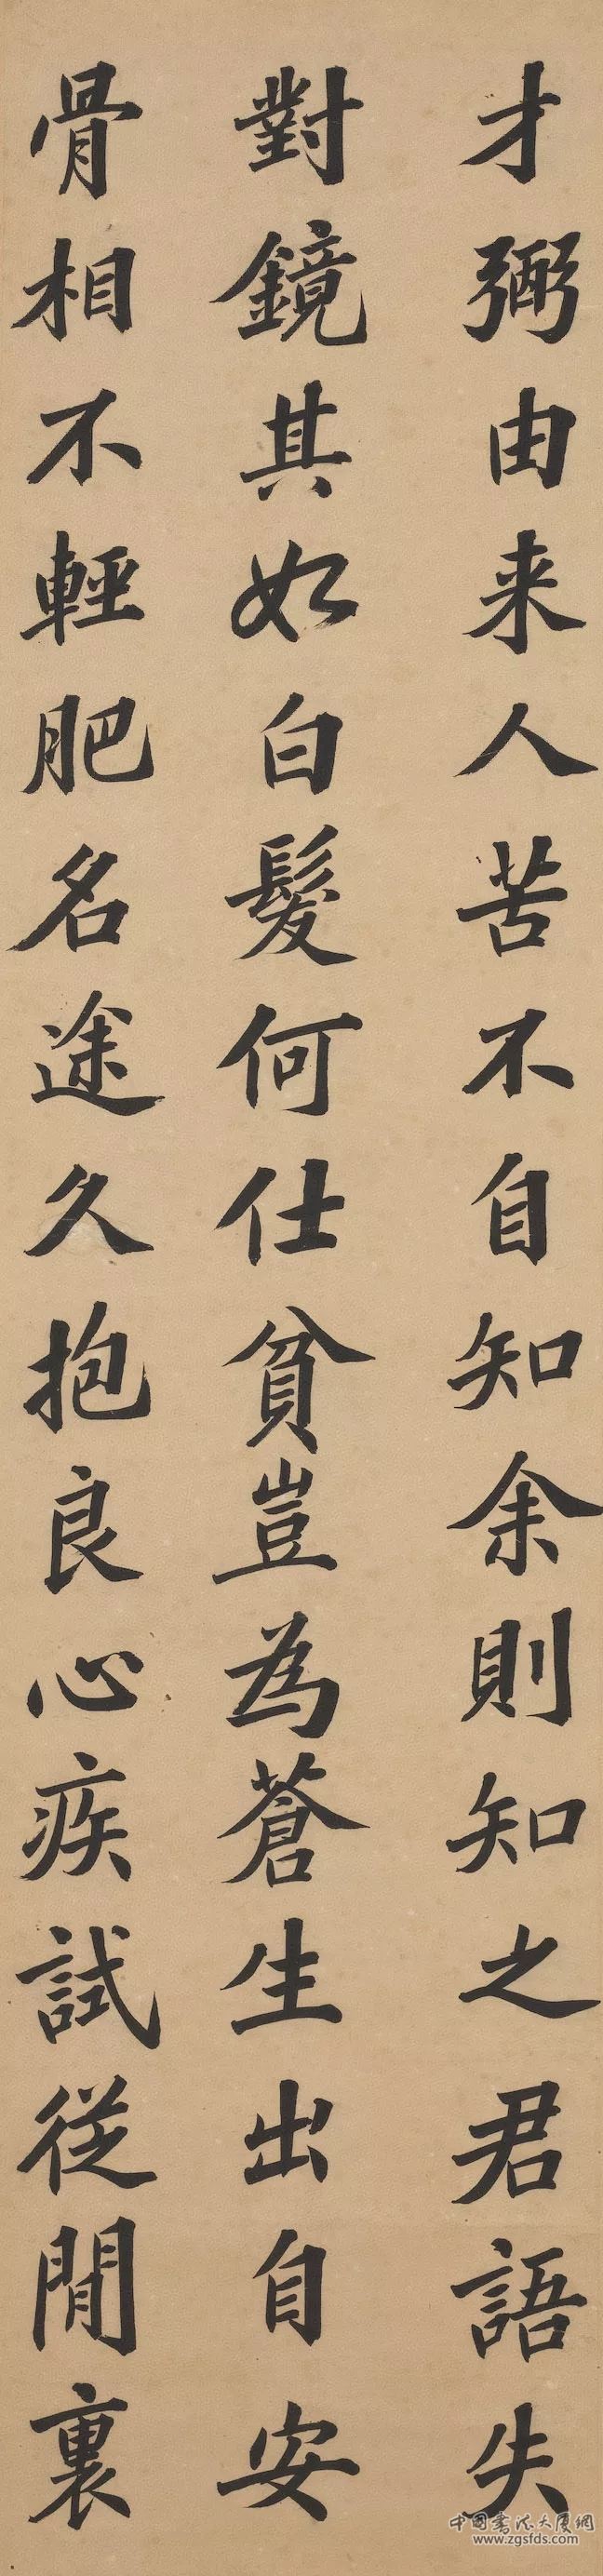 才弼由来人苦不自知余則知之君語失
對鏡其如白髮何仕貧豈為蒼生出自安
骨相不輕肥名途久抱良心疾試從閒裏
中国书法大厦网
www.zgsfds.com